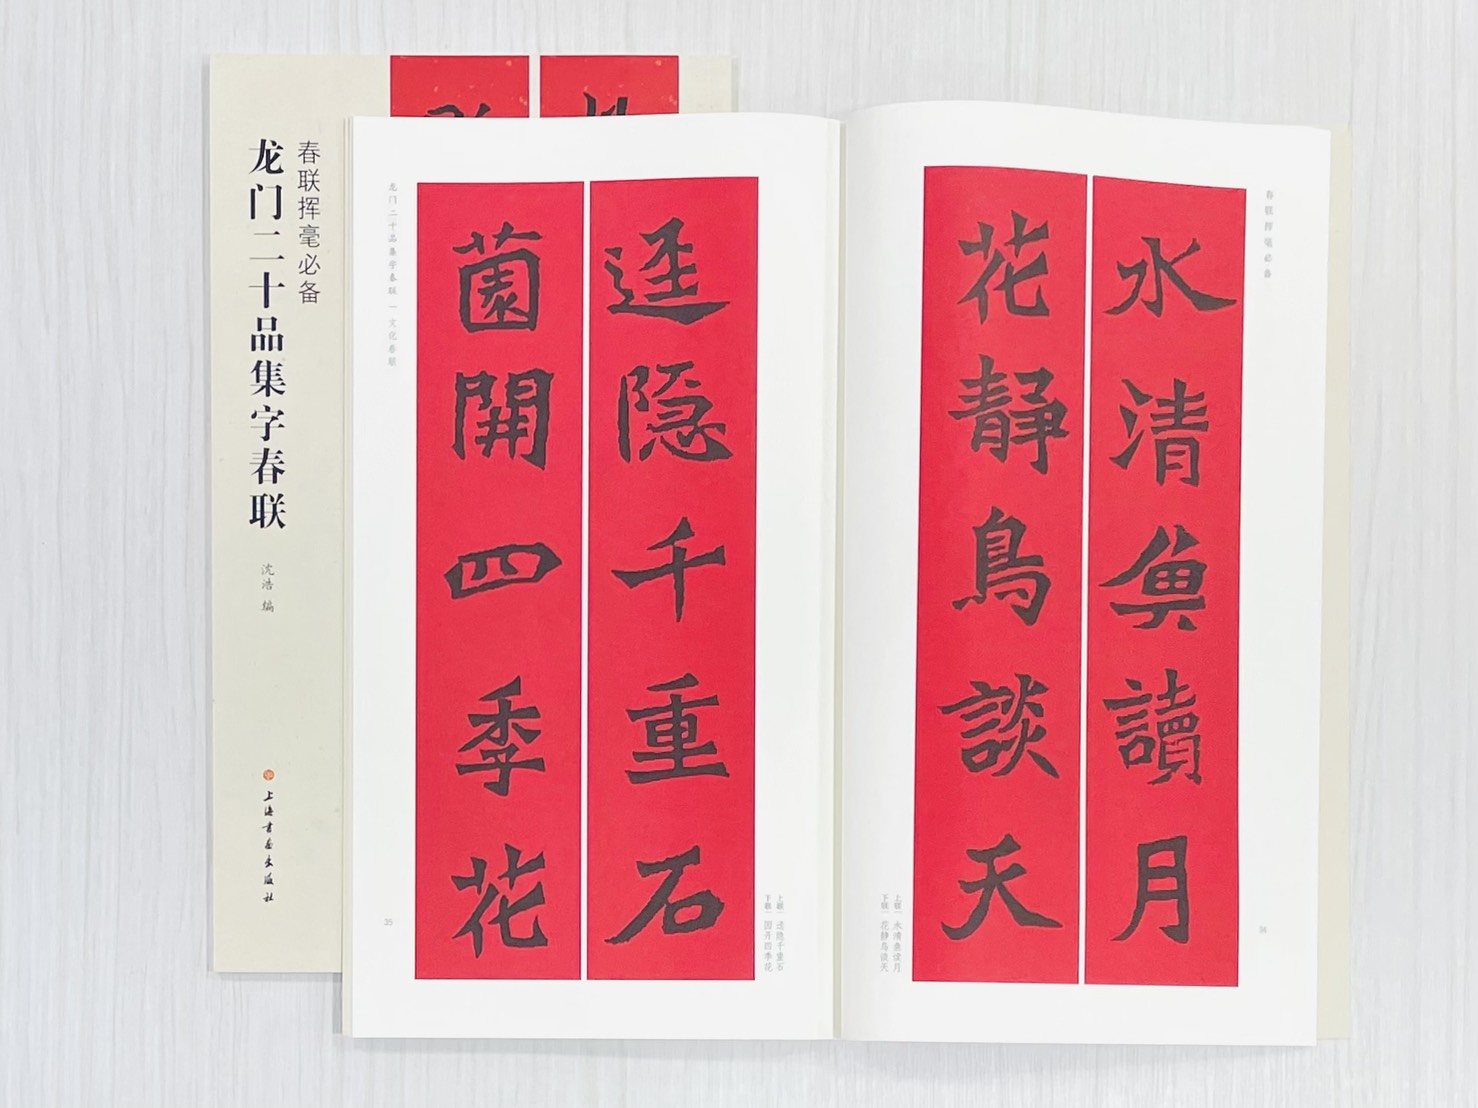 春联挥毫必备
龙门二十品集字春联
沈浩 编
上海书画出版社
春联挥毫必备
水清魚讀月
花靜鳥談天
上联 水清鱼读月
下联 花静鸟谈天
34
迳隐千重石
薗開四季花
上联 迳隐千重石
下联 园开四季花
龙门二十品集字春联 文化春联
35